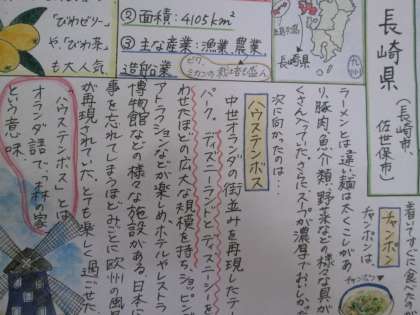 長崎県
(長崎市、
佐世保市)
②面積:4105km²
③主な産業:漁業、農業、
造船業
ビワ、
ミカンの栽培も盛ん
長崎県
九州
「びわゼリー」
や、「びわ茶」
も大人気
着いてすぐに食べた
チャンポン
チャンポンは、
ラーメンとは違い麺は太くこしがあ
り、豚肉、魚介類、野菜などの様々な具が
くさん入っていた。スープが濃厚でおいしかっ
次に向かったのは…
チャンポン
ハウステンボス
中世オランダの街並みを再現したテー
パーク。ディズニーランドとディズニーシーを
わせたほどの広大な規模を持ち、ショッピン
アトラクションなどが楽しめ、ホテルやレストラ
博物館などの様々な施設がある。日本に
事を忘れてしまうほどみごとに欧州の風
が再現されていた。とても楽しく過ごせた
「ハウステンボス」とは
オランダ語で、「森の家」
という意味